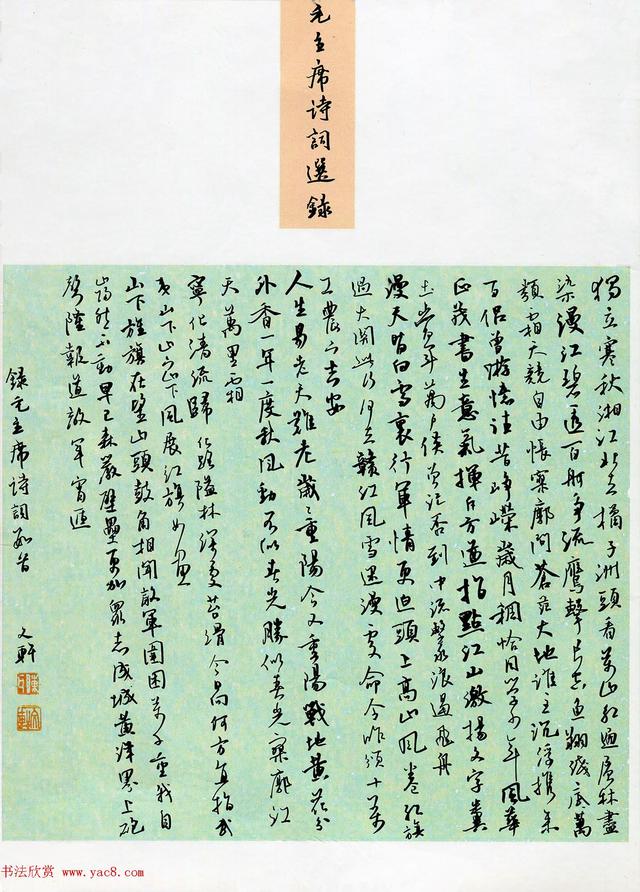 毛主席诗詞選録
獨立寒秋湘江北去橘子洲頭看萬山红遍層林盡
染漫江碧透百舸争流鷹擊長空魚翔淺底萬
類霜天競自由悵寥廓問蒼茫大地谁主沉浮携来
百侣曾遊憶往昔峥嵘歲月稠恰同学少年風華
正茂書生意氣揮斥方遒指點江山激揚文字糞
土當年萬户侯曾记否到中流擊水浪遏飛舟
漫天皆白雪裏行軍情更迫頭上高山風卷红旗
過大関此行何去贛江風雪迷漫處命令昨頒十萬
工農下吉安
人生易老天難老歲〻重陽今又重陽戰地黄花分
外香一年一度秋風動不似春光勝似春光寥廓江
天萬里霜
寧化清流歸化路隘林深苔滑今日何方直指武
夷山下山下山下風展红旗如畫
山下旌旗在望山頭鼓角相聞敵軍圍困萬千重我自
巋然不動早已森嚴壁壘更加眾志成城黄洋界上砲
聲隆報道敌軍宵遁
録毛主席诗詞數首
文軒
书法欣赏 www.yac8.com